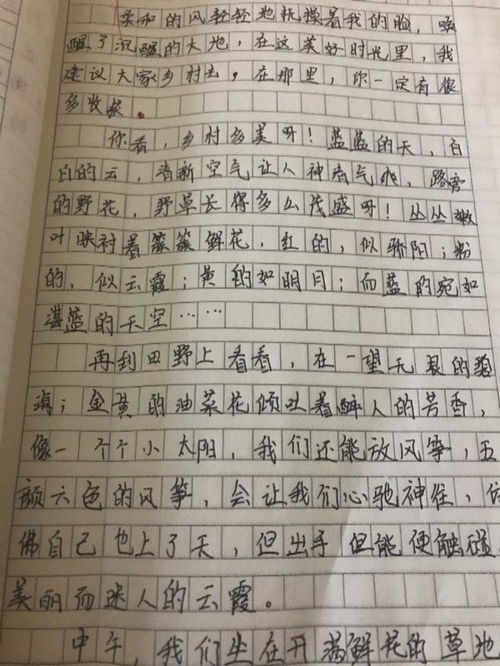 柔和的风轻轻地抚摸着我的脸，唤
醒了沉睡的大地，在这美好时光里，我
建议大家乡村去，在那里，你一定有很
多收获。
你看，乡村多美呀！蓝蓝的天，白
白的云，清新空气让人神奇气爽，路旁
的野花，野草长得多么茂盛呀！丛丛嫩
叶映衬着簇簇鲜花，红的，似骄阳；粉
的，似云霞；黄的如明月；而蓝的宛如
湛蓝的天空……
再到田野上看看，在一望无垠的碧
海；金黄的油菜花倾吐着醉人的芳香，
像一个个小太阳，我们还能放风筝，五
颜六色的风筝，会让我们心驰神往，仿
佛自己也上了天，但出手但能便触碰
美丽而迷人的云霞。
中午，我们坐在开满鲜花的草地